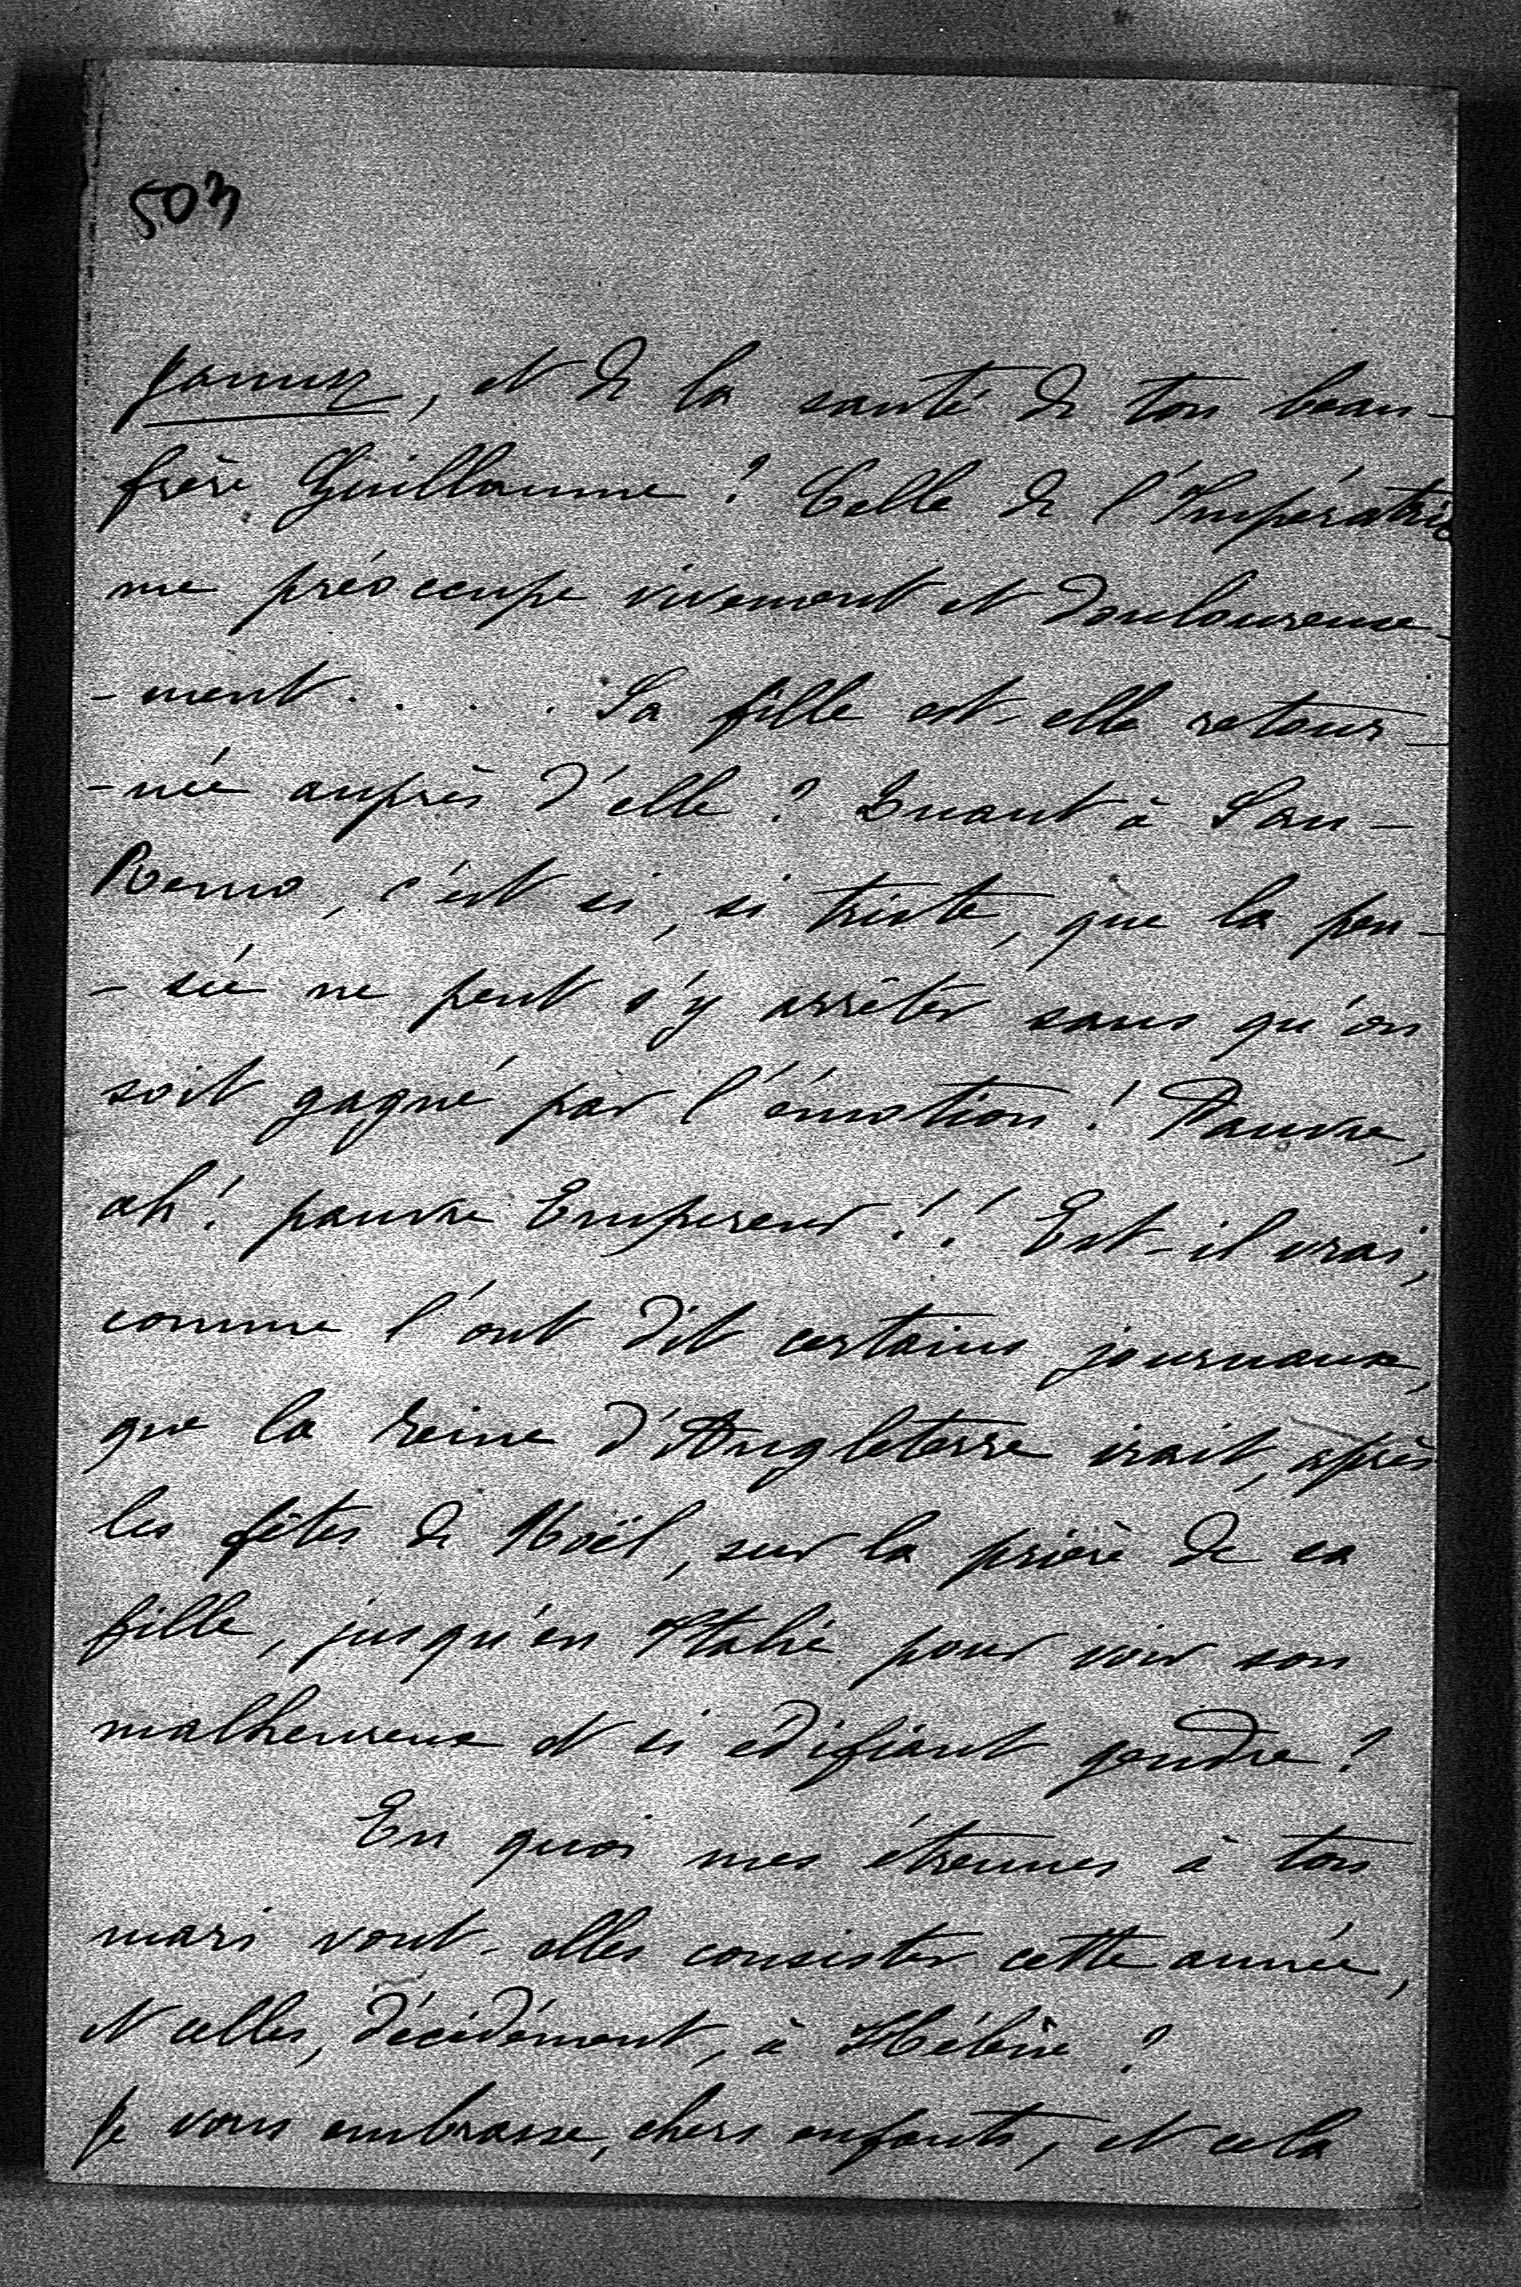 503
et de la santé de ton beau-
frère Guillaume ? Celle de l'Impératrice
me préoccupe vivement et douloureuse-
-ment. . . . . Sa fille est-elle retour-
-née auprès d'elle ? Quant à San-
Remo, c'est si, si triste, que la pen-
-sée ne peut s'y arrêter sans qu'on
soit gagné par l'émotion ! Pauvre,
ah ! pauvre Empereur ! ! Est-il vrai,
comme l'ont dit certains journaux,
que la Reine d'Angleterre irait, après
les fêtes de Noël, sur la prière de sa
fille, jusqu'en Italie pour voir son
malheureux et si édifiant gendre ?
En quoi mes étrennes à ton
mari vont-elles consister cette année,
et celles, décidément, à Hélène ?
Je vous embrasse, chers enfants, et cela